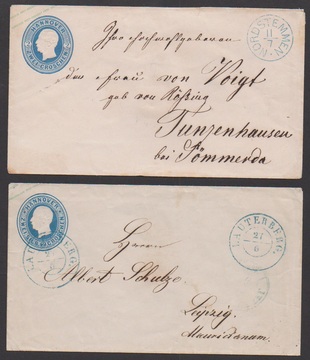 HANNOVER
ZWEI GROSCHEN
NORDSTEMMEN
11
7
Ihro Hochwohlgeboren
der Frau von Voigt
geb von Rößing
Tunzenhausen
bei Sömmerda
HANNOVER
LAUTERBERG
LAUTERBERG
27
6
Herrn
Albert Schulze
Leipzig.
Mauricianum.